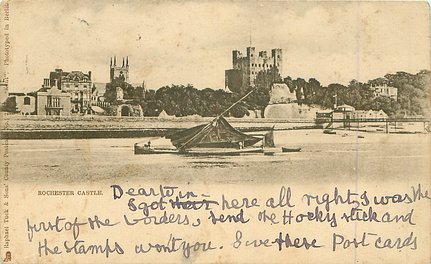 Raphael Tuck & Sons' County Postcard
Phototyped in Berlin
ROCHESTER CASTLE.
Dear twin
I got their here all right, I was the
first of the borders, send the Hocky stick and
the stamps won't you. I've these Post cards